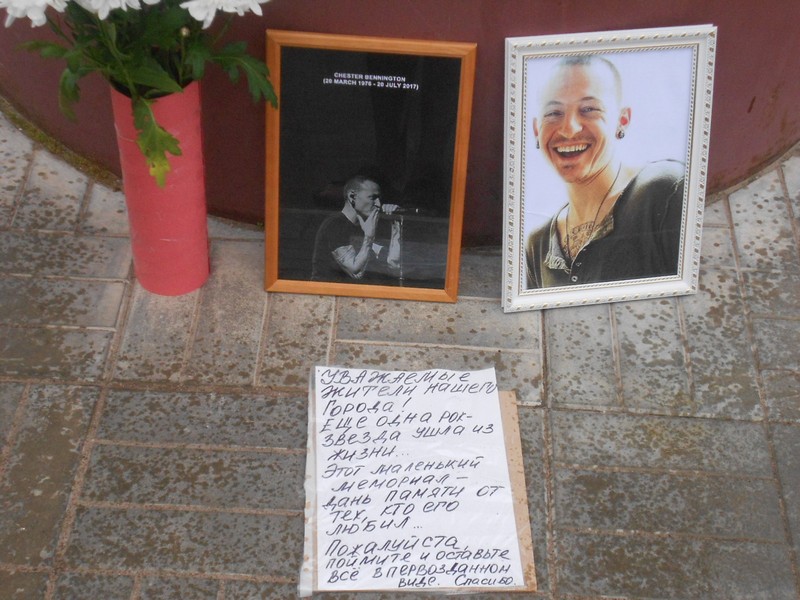 CHESTER BENNINGTON
(20 MARCH 1976 - 20 JULY 2017)
УВАЖАЕМЫЕ
ЖИТЕЛИ НАШЕГО
ГОРОДА!
ЕЩЕ ОДНА РОК-
ЗВЕЗДА УШЛА ИЗ
ЖИЗНИ...
ЭТОТ МАЛЕНЬКИЙ
МЕМОРИАЛ -
ДАНЬ ПАМЯТИ ОТ
ТЕХ, КТО ЕГО
ЛЮБИЛ...
ПОЖАЛУЙСТА,
ПОЙМИТЕ И ОСТАВЬТЕ
ВСЁ В ПЕРВОЗДАННОМ
ВИДЕ. СПАСИБО.